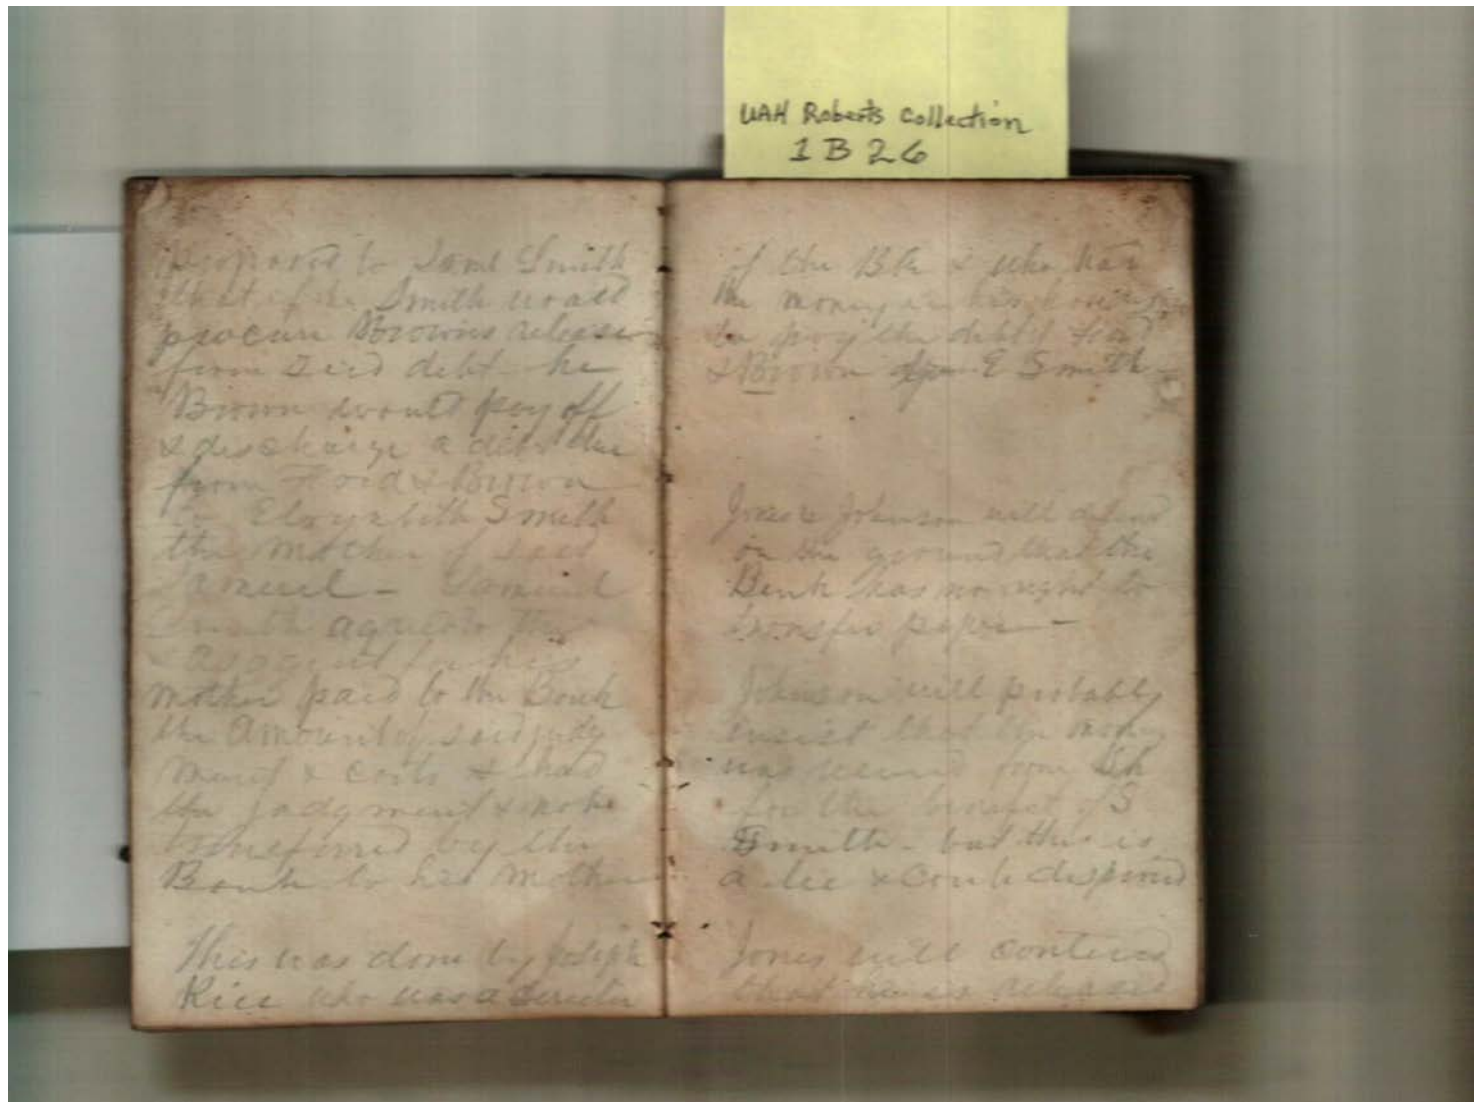 UAH Roberts Collection
1 B 26
proposed to Saml Smith
that if he Smith would
procure Browns release
from said debt he
Brown would pay off
& discharge a debt due
from Ford & Brown
to Elizabith Smith
the Mother of said
Samuel - Samuel
Smith agreed to this
for his
mother paid to the Bank
the Amount of said judg
ment & costs & had
the judgment & note
transferred by the
Bank to his Mother
This was done by Joseph
Rice who was a director
of the Bk & who had
the money in his
to pay the debt of Ford
& Brown E Smith
Jones & Johnson will defend
on the ground that the
Bank has no right to
transfer paper -
Johnson will probably
insist that the money
was from
for the benefit of S
Smith - but this is
a lie & can be disproved
Jones will contend
that he is released